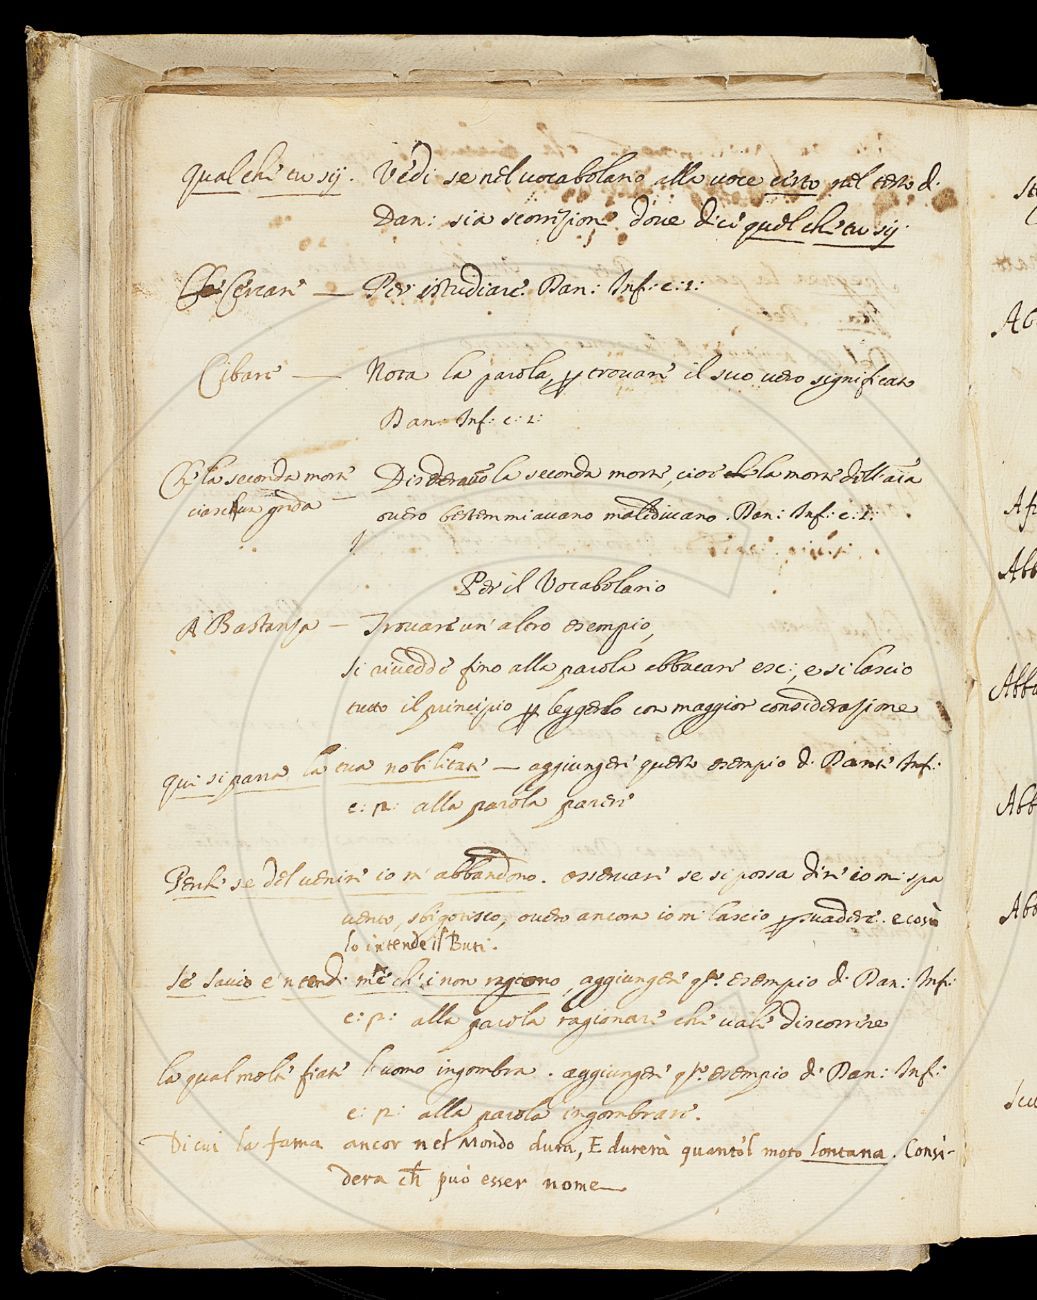 qual che tu sij. Vedi se nel vocabolario alla voce certo nel testo d.
Dan: sia scorrezione dove dice qual che tu sij.
Che Cercare — Per istudiare. Dan: Inf: c: 1:
Cibare — Nota la parola, p trovare il suo vero significato
Dan: Inf: c: 1:
Che la seconda morte Disideravo la seconda morte, cioè che la morte dell'aīa
ciascun grida — overo bestemmiavano maledivano. Dan: Inf: c: 1:
Per il Vocabolario
A Bastanza — Trovare un' altro esempio,
si riveddè fino alla parola abbacare esc:, e si lasciò
tutto il principio p leggerlo con maggior considerazione
qui si parrà la tua nobilitate — aggiungere questo esempio d. Dante Inf:
c: p: alla parola parere
Perche se del venire io m' abbandono. osservare se si possa dire io mi spa
vento, sbigotisco, overo ancora io mi lascio psuadere. e così
lo intende il Buti.
se savio e 'ntendi me' ch' i non ragiono, aggiungere qto. esempio d. Dan: Inf:
c: p: alla parola ragionare che vale discorrere
la qual molte fiate l'uomo ingombra. aggiungere qto. esempio d. Dan: Inf:
c: p: alla parola ingombrare.
Di cui la fama ancor nel Mondo dura, E durerà quanto'l moto lontana. Consi-
dera ch può esser nome
Abb
Abb
Abb